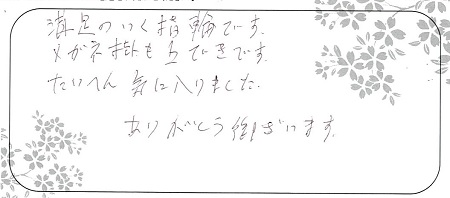 満足のいく指輪です。
メガネ拭も上できです。
たいへん気に入りました。
ありがとう御ざいます。